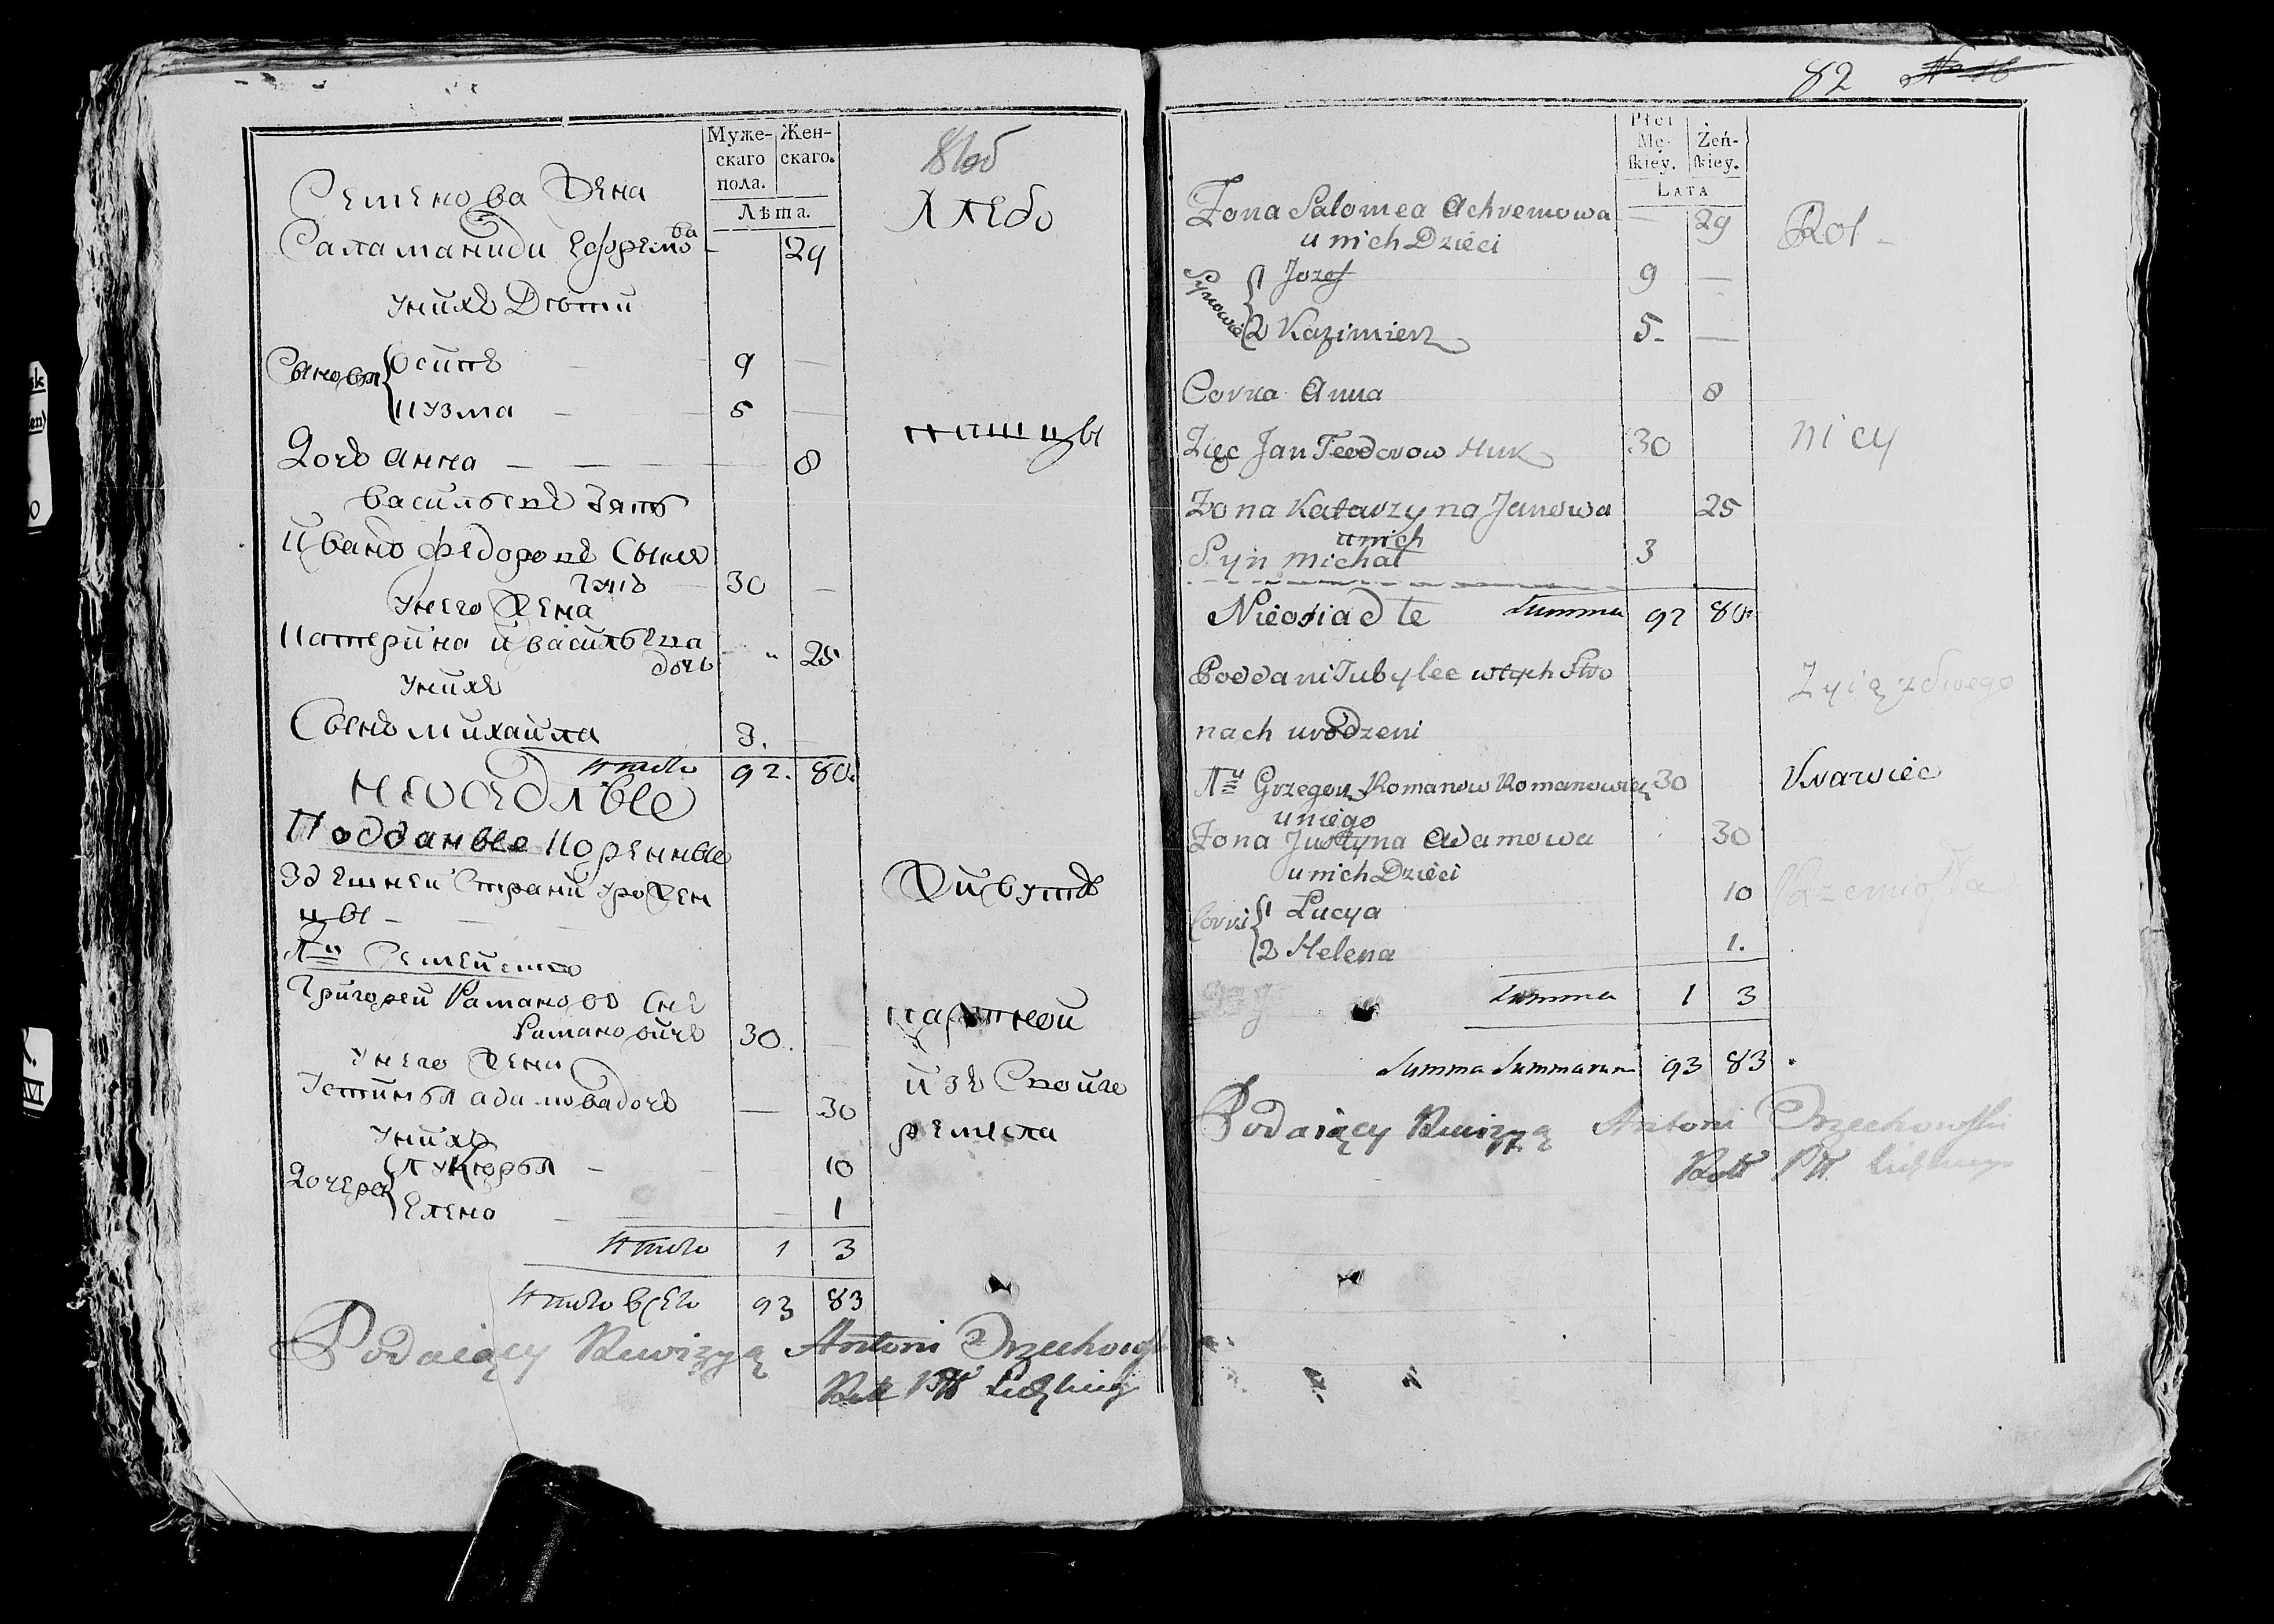 Муже-
скаго
пола.
Жен-
скаго.
Лѣта.
81об
Семенова Жена
Саламанида Ефремо
ва
29
Хлебо
у нихъ Дѣти
Сыновя
Осипъ 9 —
Кузма — 5 —
Дочь Анна — — — — 8
пашцы
Васильевъ Зять
Иванъ Федоровъ Сынъ
Гукъ 30 —
у него Жена
Катерина Васильева
дочь " 25
у нихъ
Сынъ Михайла 3.
Итого 92. 80.
Неоседлые
Подданные Коренные
здешней Страни урожен
цы —
№ Семейство
Григорей Рамановъ Снъ
Раманович 30.
у него Жена
Устинья Адамова дочь — 30
у нихъ
Дочера
Лукерья — 10
Елена 1
Живутъ
партной
изъ Своиго
ремесла
Итого 1 3
Итого всего 93 83
Podaiący Rewizyą Antoni Orzechowski
82
Płci
Mę-
ſkiey.
Żeń-
ſkiey.
LATA
Zona Salomea Achremowa — 29
u nich Dzieci
Rol -
Synowie
1 Jozef 9 —
2 Kazimierz 5. —
Corka Anna 8
Zięc Jan Teodorow Huk 30
nicy
Zona Katarzyna Janowa 25
u nich
Syn Michał 3
Nieosiadłe Summa 92 80.
Poddani Tubylce w tych Stro
nach urodzeni
Zyią z Swego
№ Grzegorz Romanow Romanowicz 30
Krawiec
u niego
Zona Justyna Adamowa 30
u nich Dzieci
Corki
1 Lucya 10
2 Helena 1.
Rzemiosła
Summa 1 3
Summa Summarum 93 83
Podaiący Rewizyą Antoni Orzechowski